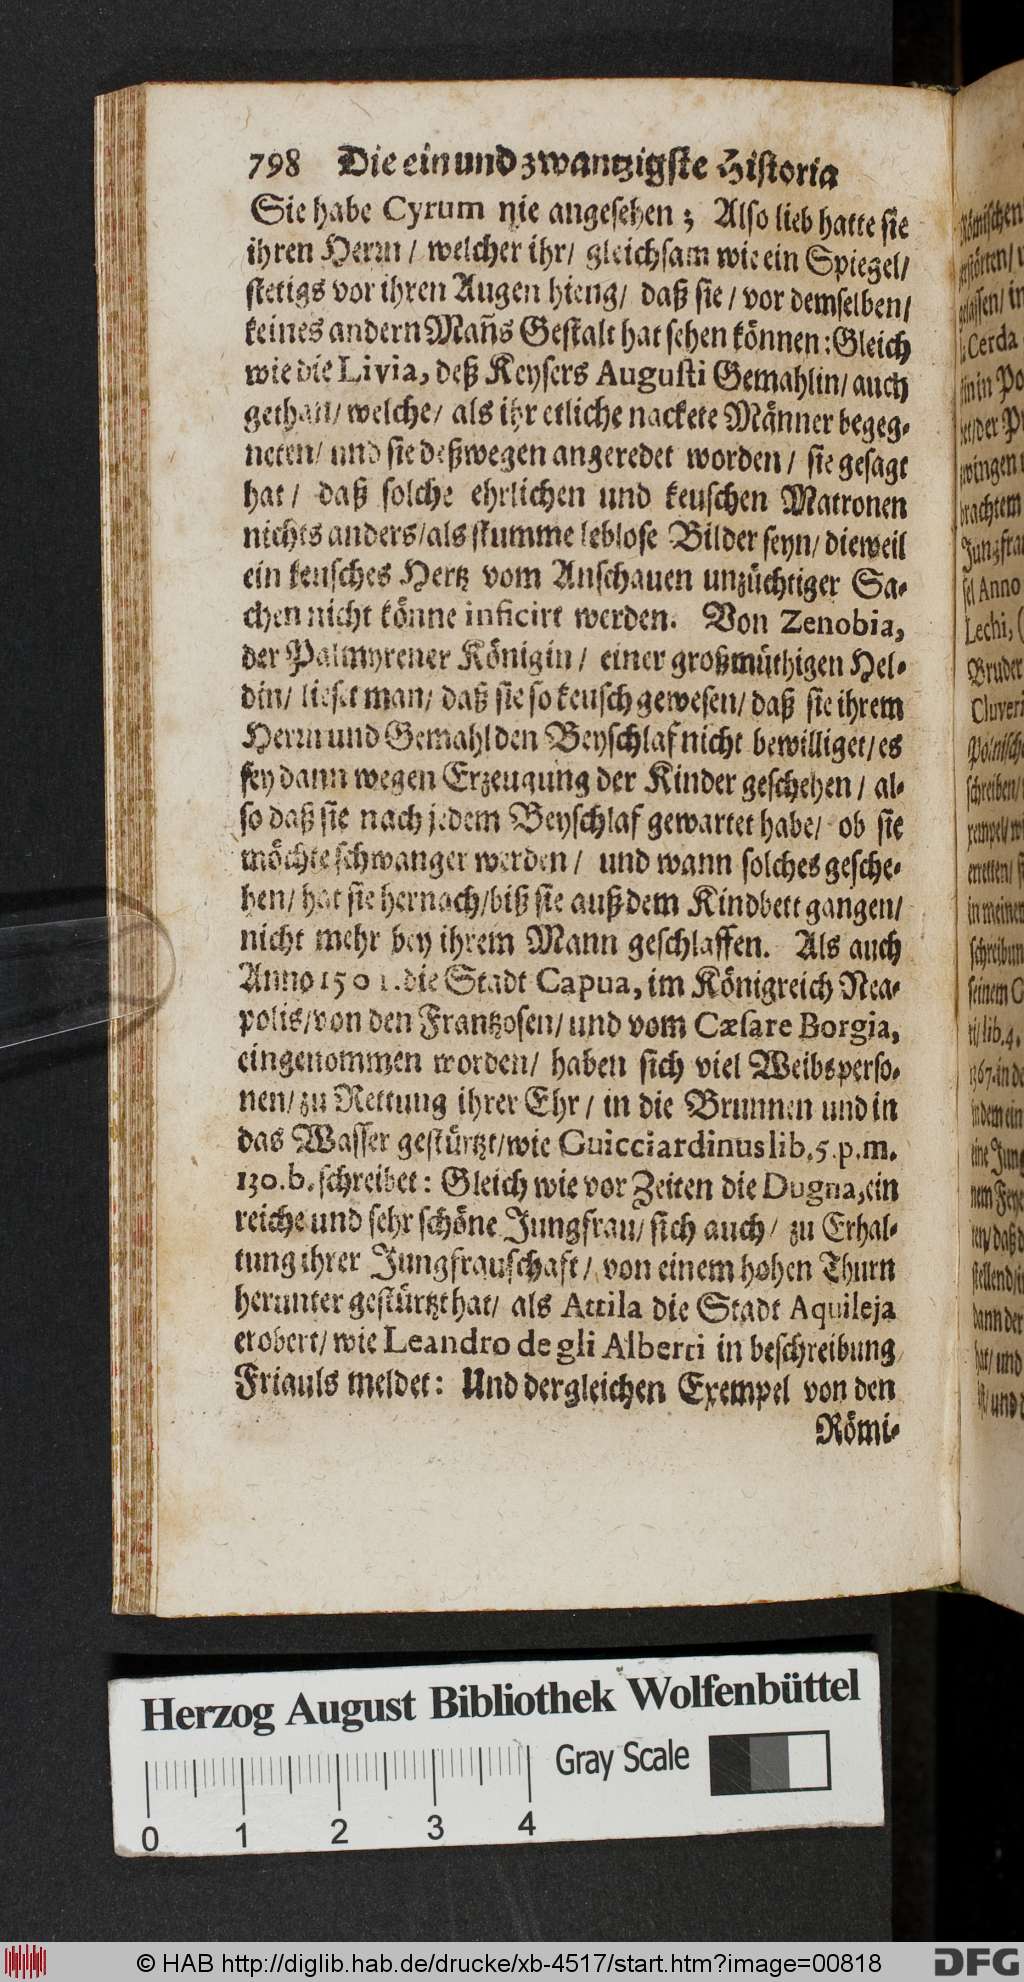 798 Die ein und zwantzigste Historia
Sie habe Cyrum nie angesehen; Also lieb hatte sie
ihren Herrn / welcher ihr / gleichsam wie ein Spiegel /
stetigs vor ihren Augen hieng / daß sie / vor demselben /
keines andern Mañs Gestalt hat sehen können: Gleich
wie die Livia, deß Keysers Augusti Gemahlin / auch
gethan / welche / als ihr etliche nackete Männer begeg-
neten / und sie deßwegen angeredet worden / sie gesagt
hat / daß solche ehrlichen und keuschen Matronen
nichts anders / als stumme leblose Bilder seyn / dieweil
ein keusches Hertz vom Anschauen unzüchtiger Sa-
chen nicht könne inficirt werden. Von Zenobia,
der Palmyrener Königin / einer großmüthigen Hel-
din / lieset man / daß sie so keusch gewesen / daß sie ihrem
Herrn und Gemahl den Beyschlaf nicht bewilliget / es
sey dann wegen Erzeugung der Kinder geschehen / al-
so daß sie nach jedem Beyschlaf gewartet habe / ob sie
möchte schwanger werden / und wann solches gesche-
hen / hat sie hernach / biß sie auß dem Kindbett gangen /
nicht mehr bey ihrem Mann geschlaffen. Als auch
Anno 1501. die Stadt Capua, im Königreich Nea-
polis / von den Frantzosen / und vom Cæsare Borgia,
eingenommen worden / haben sich viel Weibsperso-
nen / zu Rettung ihrer Ehr / in die Brunnen und in
das Wasser gestürtzt / wie Guicciardinus lib. 5. p. m.
130. b. schreibet: Gleich wie vor Zeiten die Dugna, ein
reiche und sehr schöne Jungfrau / sich auch / zu Erhal-
tung ihrer Jungfrauschaft / von einem hohen Thurn
herunter gestürtzt hat / als Attila die Stadt Aquileja
erobert / wie Leandro de gli Alberti in beschreibung
Friauls meldet: Und dergleichen Exempel von den
Römi-
Römischen
Cerda
Jungfrau
Anno
Lechi,
Bruder
Cluveri
Polnische
schreiben /
in meinen
seinem
lib. 4.
1367. in de
Herzog August Bibliothek Wolfenbüttel
Gray Scale
0 1 2 3 4
© HAB http://diglib.hab.de/drucke/xb-4517/start.htm?image=00818
DFG